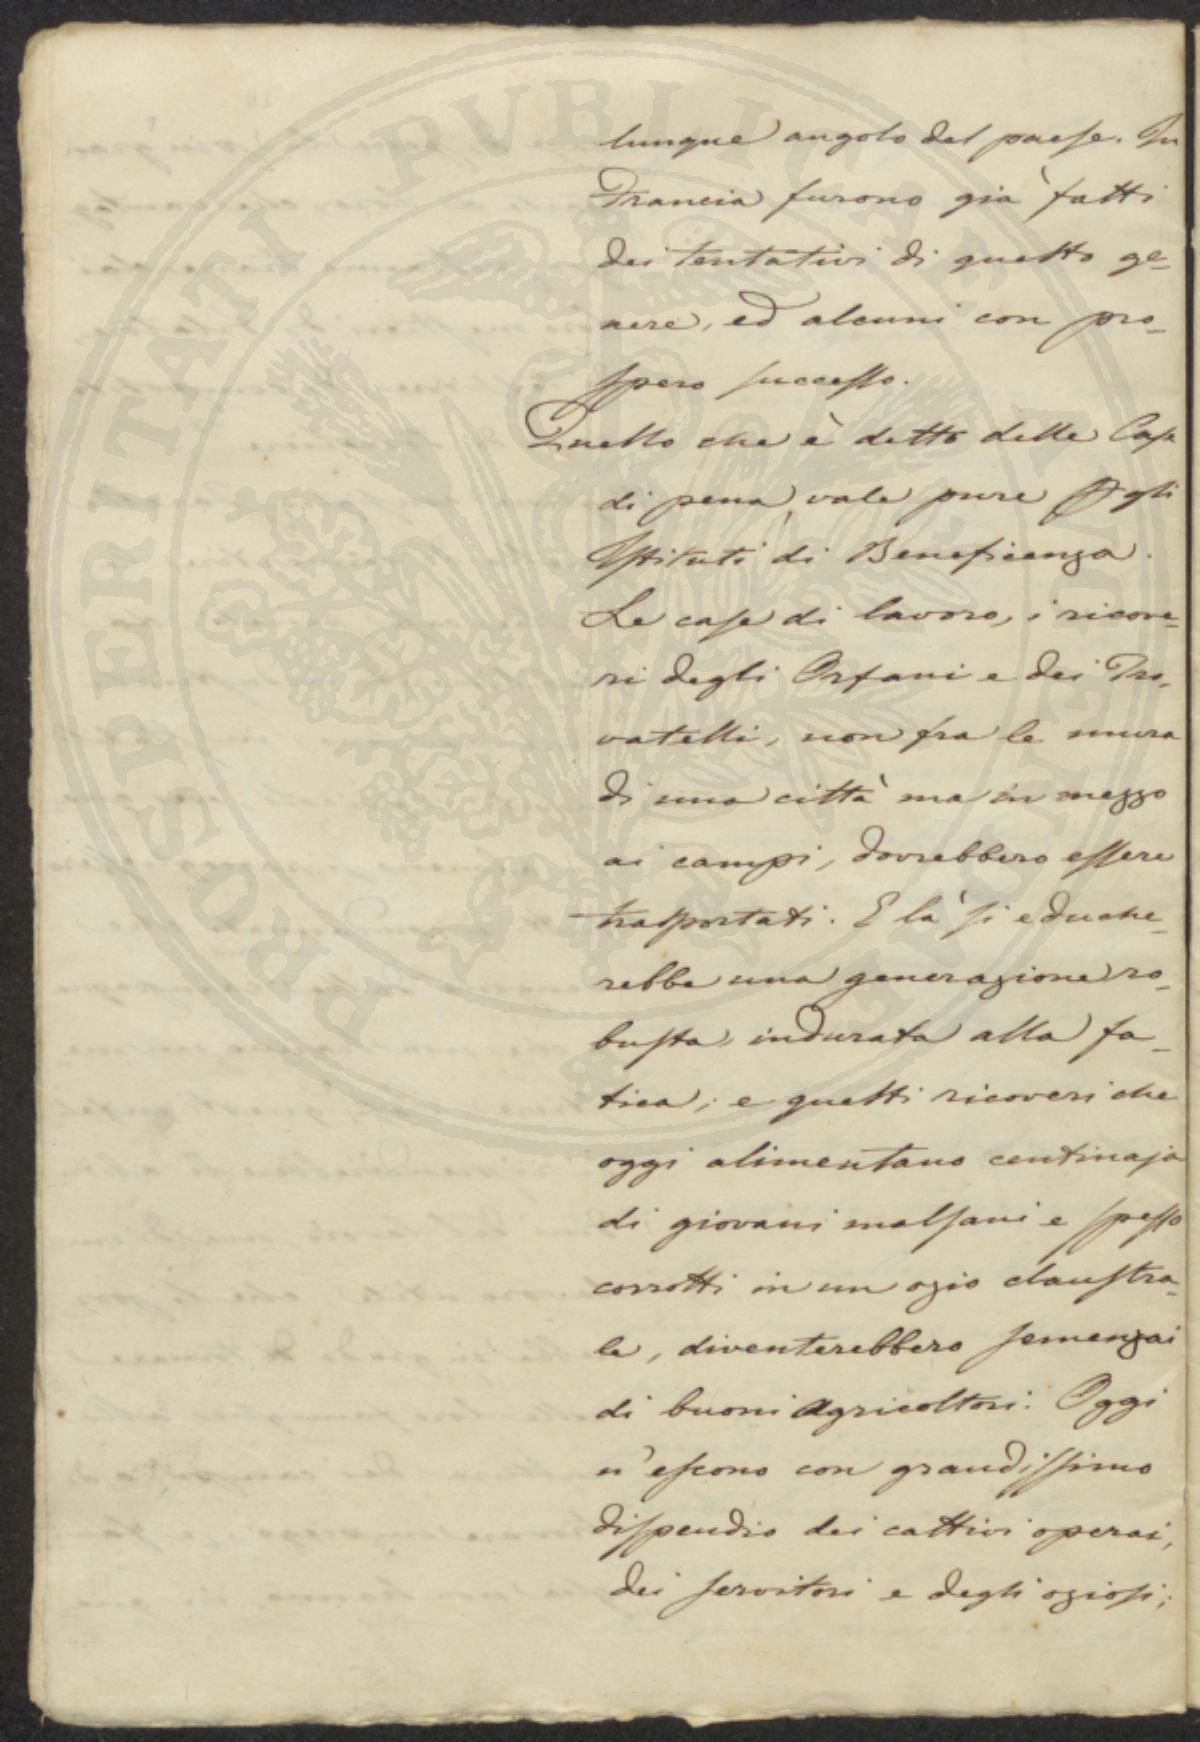 PROSPERITATI PVBLICAE AVGENDAE
lunque angolo del paese. In
Francia furono già fatti
dei tentativi di questo ge-
nere, ed alcuni con pro-
spero successo.
Quello che è detto delle Case
di pena, vale pure p gli
Istituti di Beneficenza.
Le case di lavoro, i ricove-
ri degli Orfani e dei Tro-
vatelli, non fra le mura
di una città ma in mezzo
ai campi, dovrebbero essere
trasportati. E là si eduche-
rebbe una generazione ro-
busta, indurata alla fa-
tica; e questi ricoveri che
oggi alimentano centinaja
di giovani malsani e spesso
corrotti in un ozio claustra-
le, diventerebbero semenzai
di buoni Agricoltori. Oggi
n'escono con grandissimo
dispendio dei cattivi operai,
dei servitori e degli oziosi;